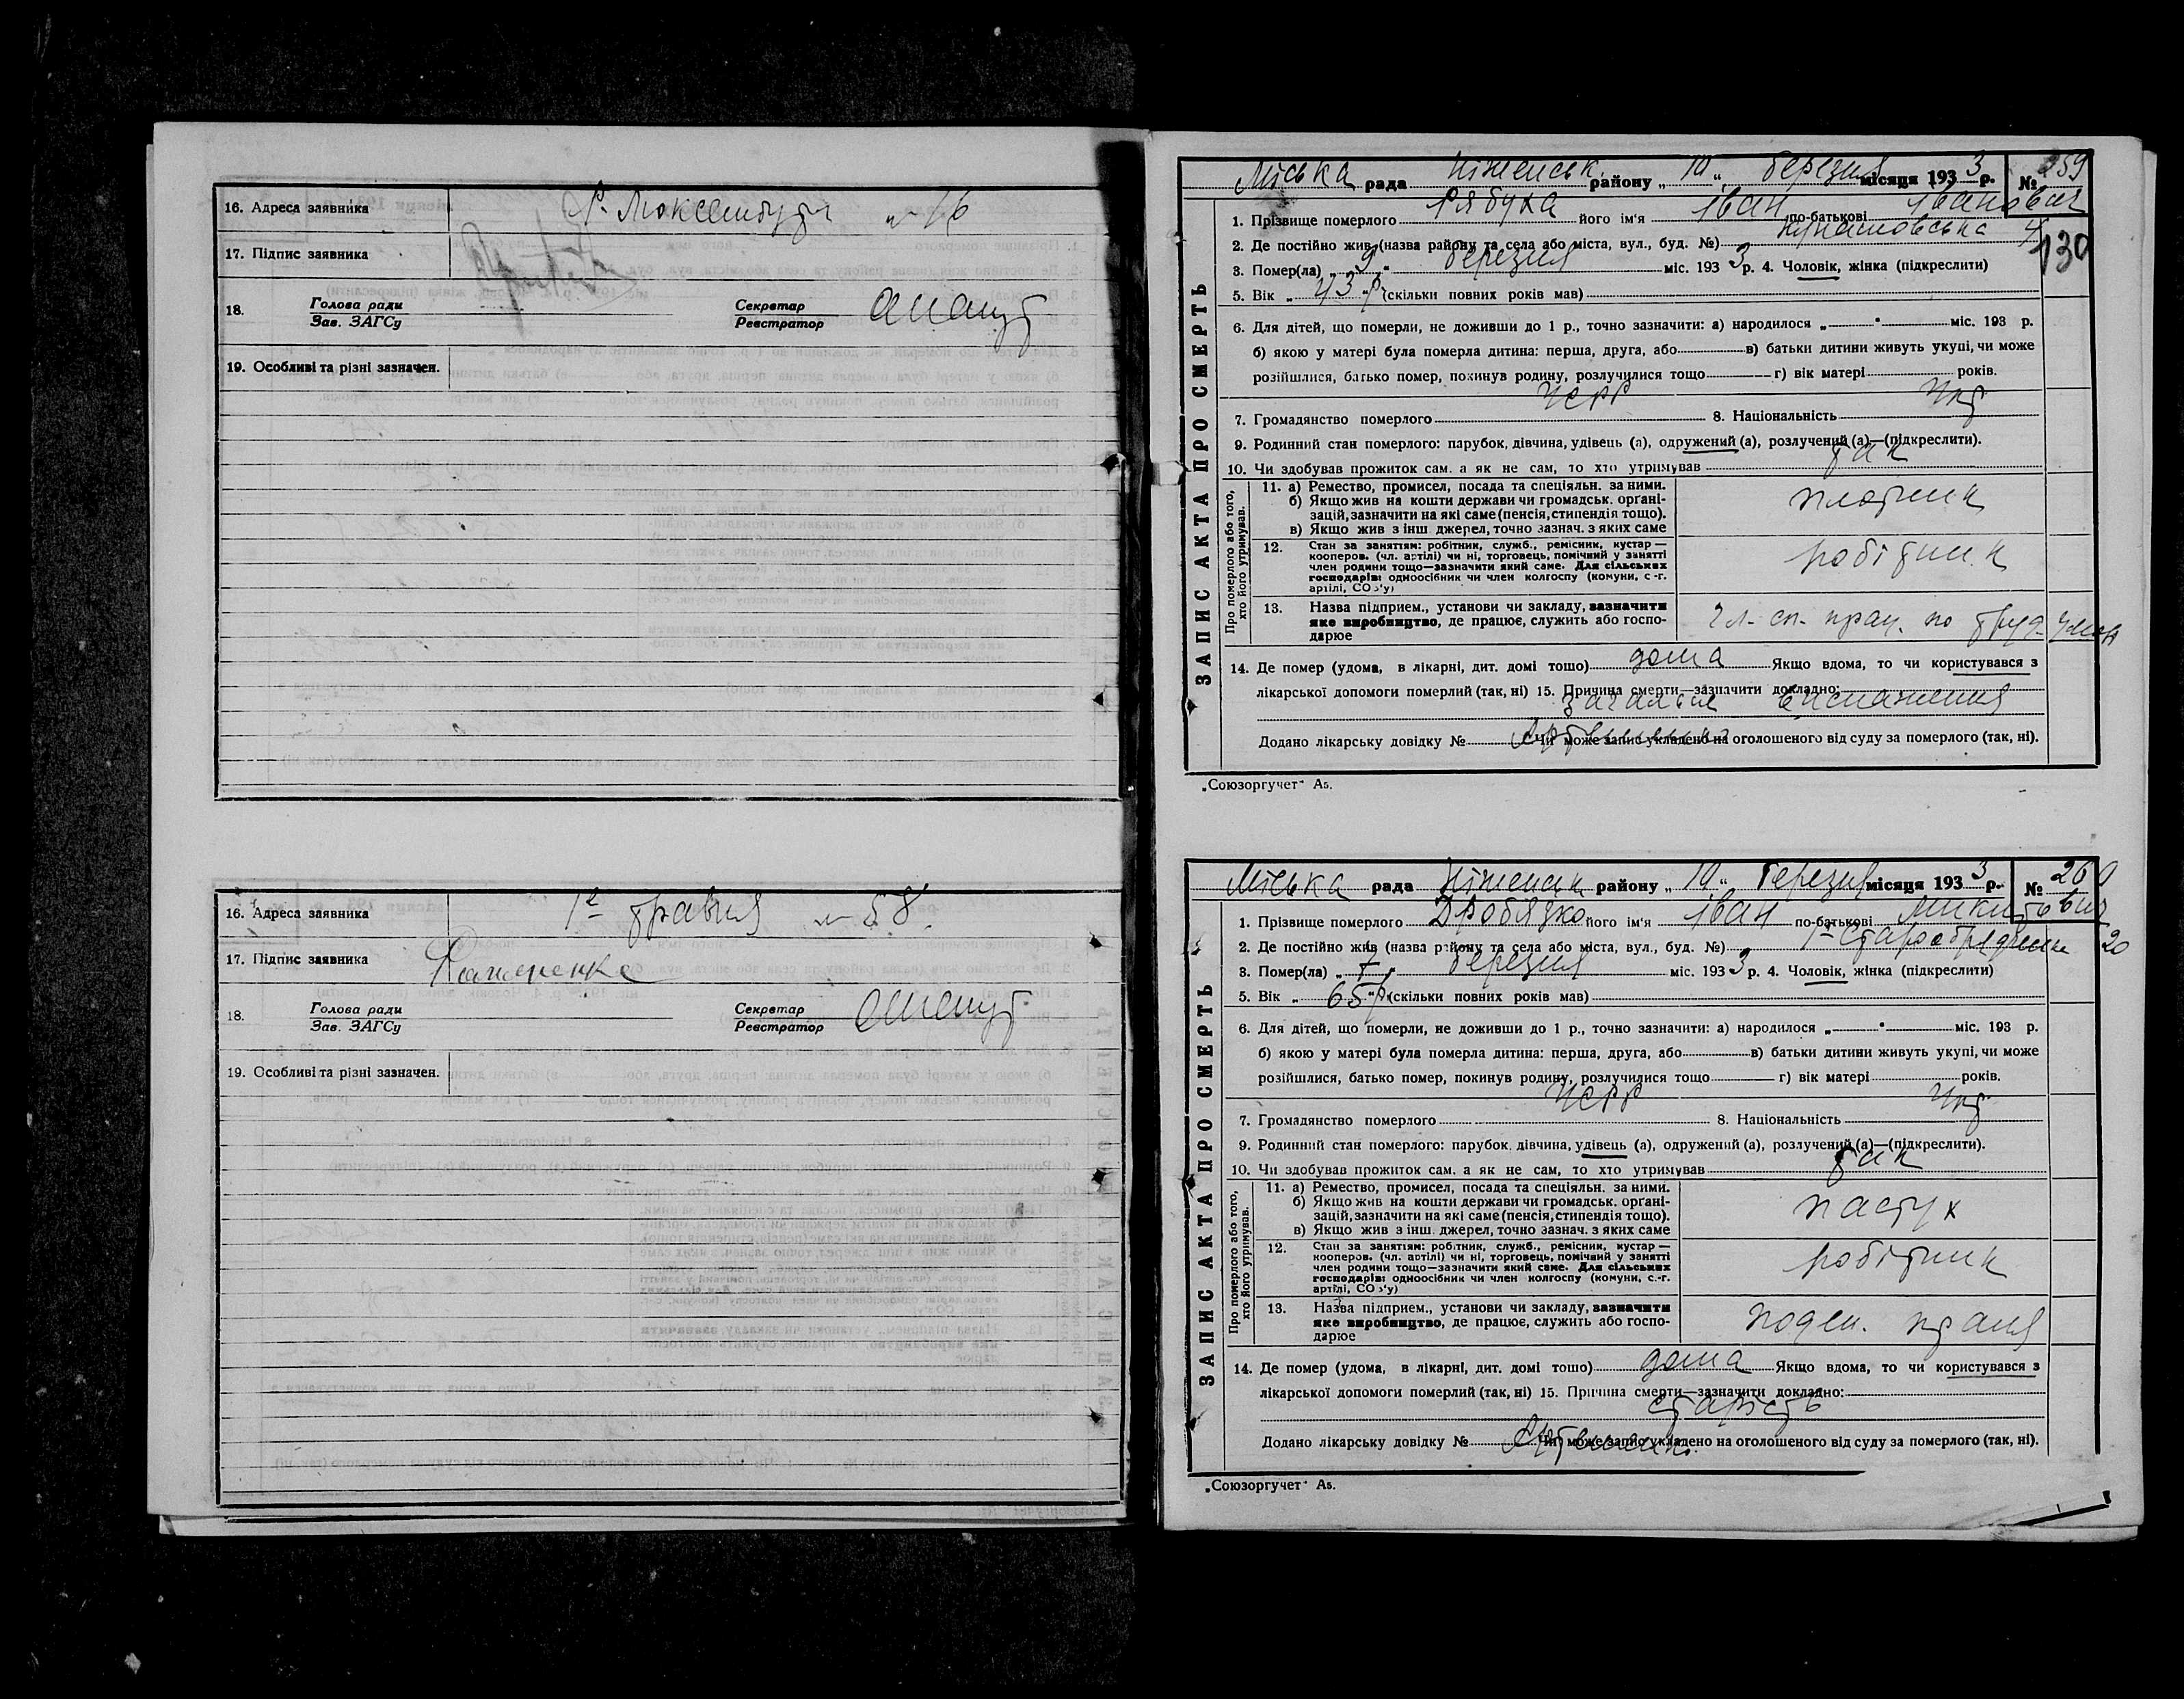 16. Адреса заявника Р. Люксембург № 16
17. Підпис заявника
18. Голова ради Секретар
Зав. ЗАГСу Реєстратор
19. Особливі та різні зазначен.
16. Адреса заявника 1го травня № 58
17. Підпис заявника
18. Голова ради Секретар
Зав. ЗАГСу Реєстратор
19. Особливі та різні зазначен.
ЗАПИС АКТА ПРО СМЕРТЬ
Міська рада Ніженськ. району „ 10 “ березня місяця 1933 р. № 259
1. Прізвище померлого Рябуха його ім'я Іван по-батькові Іванович
2. Де постійно жив (назва району та села або міста, вул., буд. №) 4
130
3. Помер(ла) „ 9 “ березня міс. 1933 р. 4. Чоловік, жінка (підкреслити)
5. Вік „ 43 р. “ (скільки повних років мав)
6. Для дітей, що померли, не доживши до 1 р., точно зазначити: а) народилося „ “ міс. 193 р.
б) якою у матері була померла дитина: перша, друга, або в) батьки дитини живуть укупі, чи може
розійшлися, батько помер, покинув родину, розлучилися тощо г) вік матері років.
7. Громадянство померлого УСРР 8. Національність Укр
9. Родинний стан померлого: парубок, дівчина, удівець (а), одружений (а), розлучений (а)—(підкреслити).
10. Чи здобував прожиток сам, а як не сам, то хто утримував так
Про померлого або того, хто його утримував.
11. а) Ремество, промисел, посада та спеціяльн. за ними.
б) Якщо жив на кошти держави чи громадськ. органі-
зацій, зазначити на які саме (пенсія, стипендія тощо).
в) Якщо жив з інш. джерел, точно зазнач. з яких саме
плотник
12. Стан за заняттям: робітник, служб., ремісник, кустар—
кооперов. (чл. артілі) чи ні, торговець, помічний у занятті
член родини тощо—зазначити який саме. Для сільських
господарів: одноосібник чи член колгоспу (комуни, с.-г.
артілі, СОЗ'у)
робітник
13. Назва підприєм., установи чи закладу, зазначити
яке виробництво, де працює, служить або госпо-
дарює
чл. сп. прац. по труд.
14. Де помер (удома, в лікарні, дит. домі тошо) дома Якщо вдома, то чи користувався з
лікарської допомоги померлий (так, ні) 15. Причина смерти—зазначити докладно:
загальне виснаження
Додано лікарську довідку № Чи може запис укладено на оголошеного від суду за померлого (так, ні).
„Союзоргучет“ А5.
ЗАПИС АКТА ПРО СМЕРТЬ
Міська рада Ніженськ району „ 10 “ березня місяця 1933 р. № 260
1. Прізвище померлого Дробязко його ім'я Іван по-батькові Микитович
2. Де постійно жив (назва району та села або міста, вул., буд. №) 20
3. Помер(ла) „ 7 “ березня міс. 1933 р. 4. Чоловік, жінка (підкреслити)
5. Вік „ 65 р. “ (скільки повних років мав)
6. Для дітей, що померли, не доживши до 1 р., точно зазначити: а) народилося „ “ міс. 193 р.
б) якою у матері була померла дитина: перша, друга, або в) батьки дитини живуть укупі, чи може
розійшлися, батько помер, покинув родину, розлучилися тощо г) вік матері років.
7. Громадянство померлого УСРР 8. Національність Укр
9. Родинний стан померлого: парубок, дівчина, удівець (а), одружений (а), розлучений (а)—(підкреслити).
10. Чи здобував прожиток сам, а як не сам, то хто утримував так
Про померлого або того, хто його утримував.
11. а) Ремество, промисел, посада та спеціяльн. за ними.
б) Якщо жив на кошти держави чи громадськ. органі-
зацій, зазначити на які саме (пенсія, стипендія тощо).
в) Якщо жив з інш. джерел, точно зазнач. з яких саме
пастух
12. Стан за заняттям: робітник, служб., ремісник, кустар—
кооперов. (чл. артілі) чи ні, торговець, помічний у занятті
член родини тощо—зазначити який саме. Для сільських
господарів: одноосібник чи член колгоспу (комуни, с.-г.
артілі, СОЗ'у)
робітник
13. Назва підприєм., установи чи закладу, зазначити
яке виробництво, де працює, служить або госпо-
дарює
поден. праця
14. Де помер (удома, в лікарні, дит. домі тошо) дома Якщо вдома, то чи користувався з
лікарської допомоги померлий (так, ні) 15. Причина смерти—зазначити докладно:
старість
Додано лікарську довідку № Чи може запис укладено на оголошеного від суду за померлого (так, ні).
„Союзоргучет“ А5.